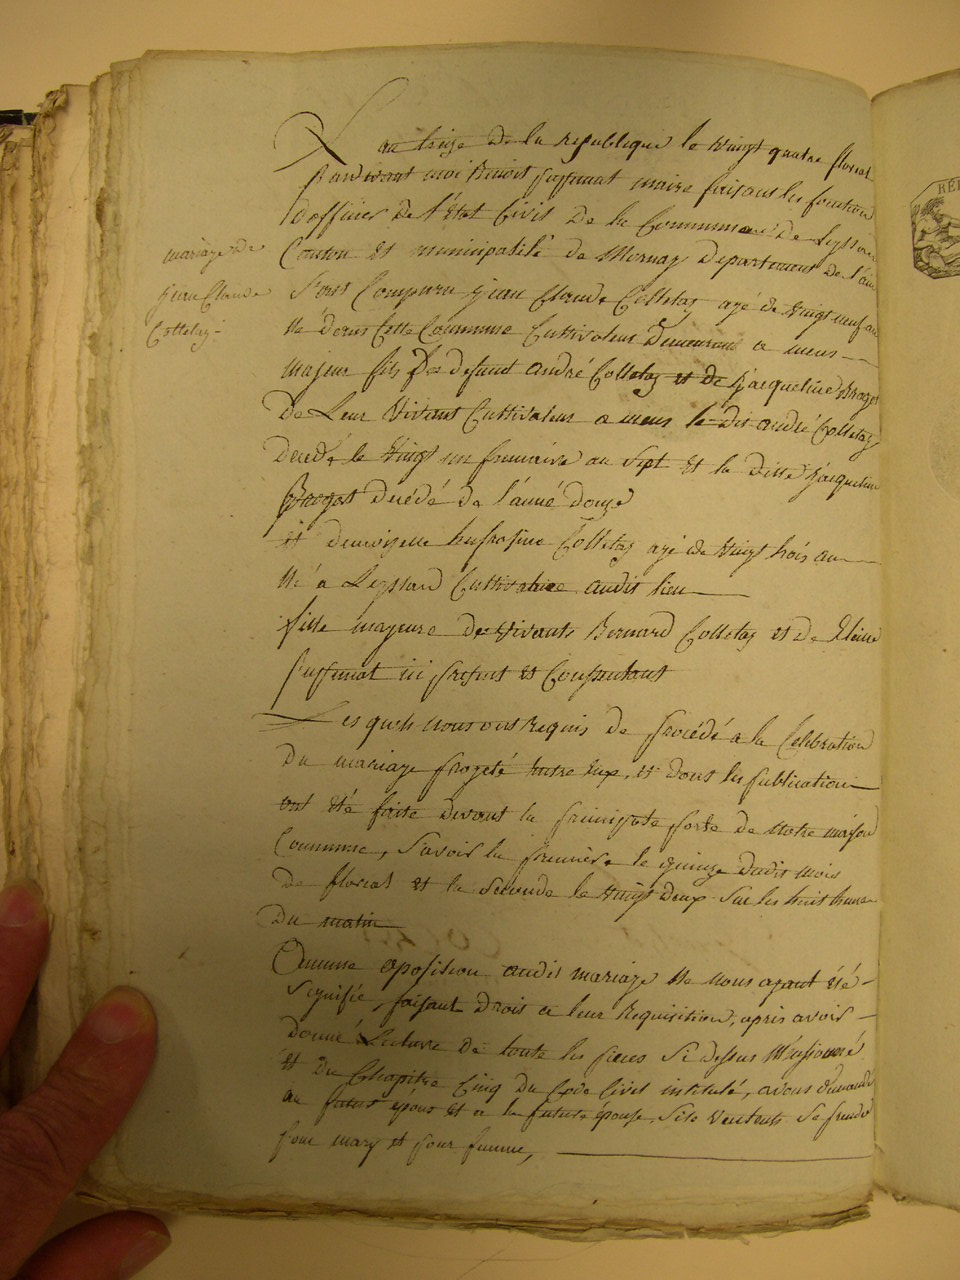 mariage de
jean Claude
Colletaz
L'an treize de la republique le vingt quatre floreal
pardevant moi Benoit suffinat maire faisant les fonction
dofficier de l'état Civil de la Commune de Leyssard
Canton et municipalité de Mornay departement de l'ain
Sont Comparu jean Claude Colletaz agé de vingt neuf an
Né dans Cette Commune Cultivateur Demeurant a
majeur fils de defunt andré Colletaz et de jacqueline
De Leur Vivant Cultivateur a le dit andré Colletaz
Decedé le vingt un frimaire an sept et la ditte jacqueline
decédé de l'anné douze
et demoiselle Colletaz agé de vingt trois an
Né a Leyssard Cultivatrice audit lieu
fille majeure de vivants Bernard Colletaz et de
suffinat ici present et Consentant
Lesquels nous ont Requis de procédé a la Celebration
Du mariage projeté entre eux, et dont les publication
ont été faite devant la principale porte de Notre maison
Commune, Savoir la premiere le quinze dudit mois
De floreal et la Seconde le vingt deux Sur les huit heures
Du matin
Aucune oposition audit mariage Ne nous ayant été
Signifié, faisant Droit a leur Requisition, apres avoir
Donné Lecture de toute les pieces Si dessus
et Du Chapitre Cinq Du Code Civil intitulé, avons demandé
au futur epoux et a la future épouse Sils veulent Se prendre
pour mary et pour femme,
REP